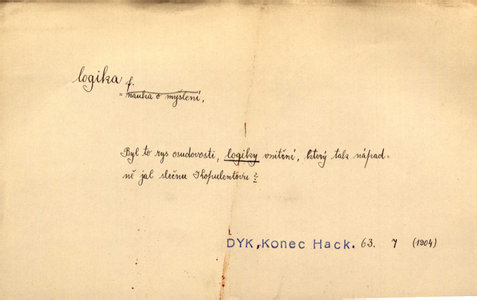 logika f.
= nauka o myšlení.
Byl to rys osudovosti, logiky vnitřní, který tak nápad-
ně jal slečnu Kopulentovu
DYK, Konec Hack. 63. 7 (1904)